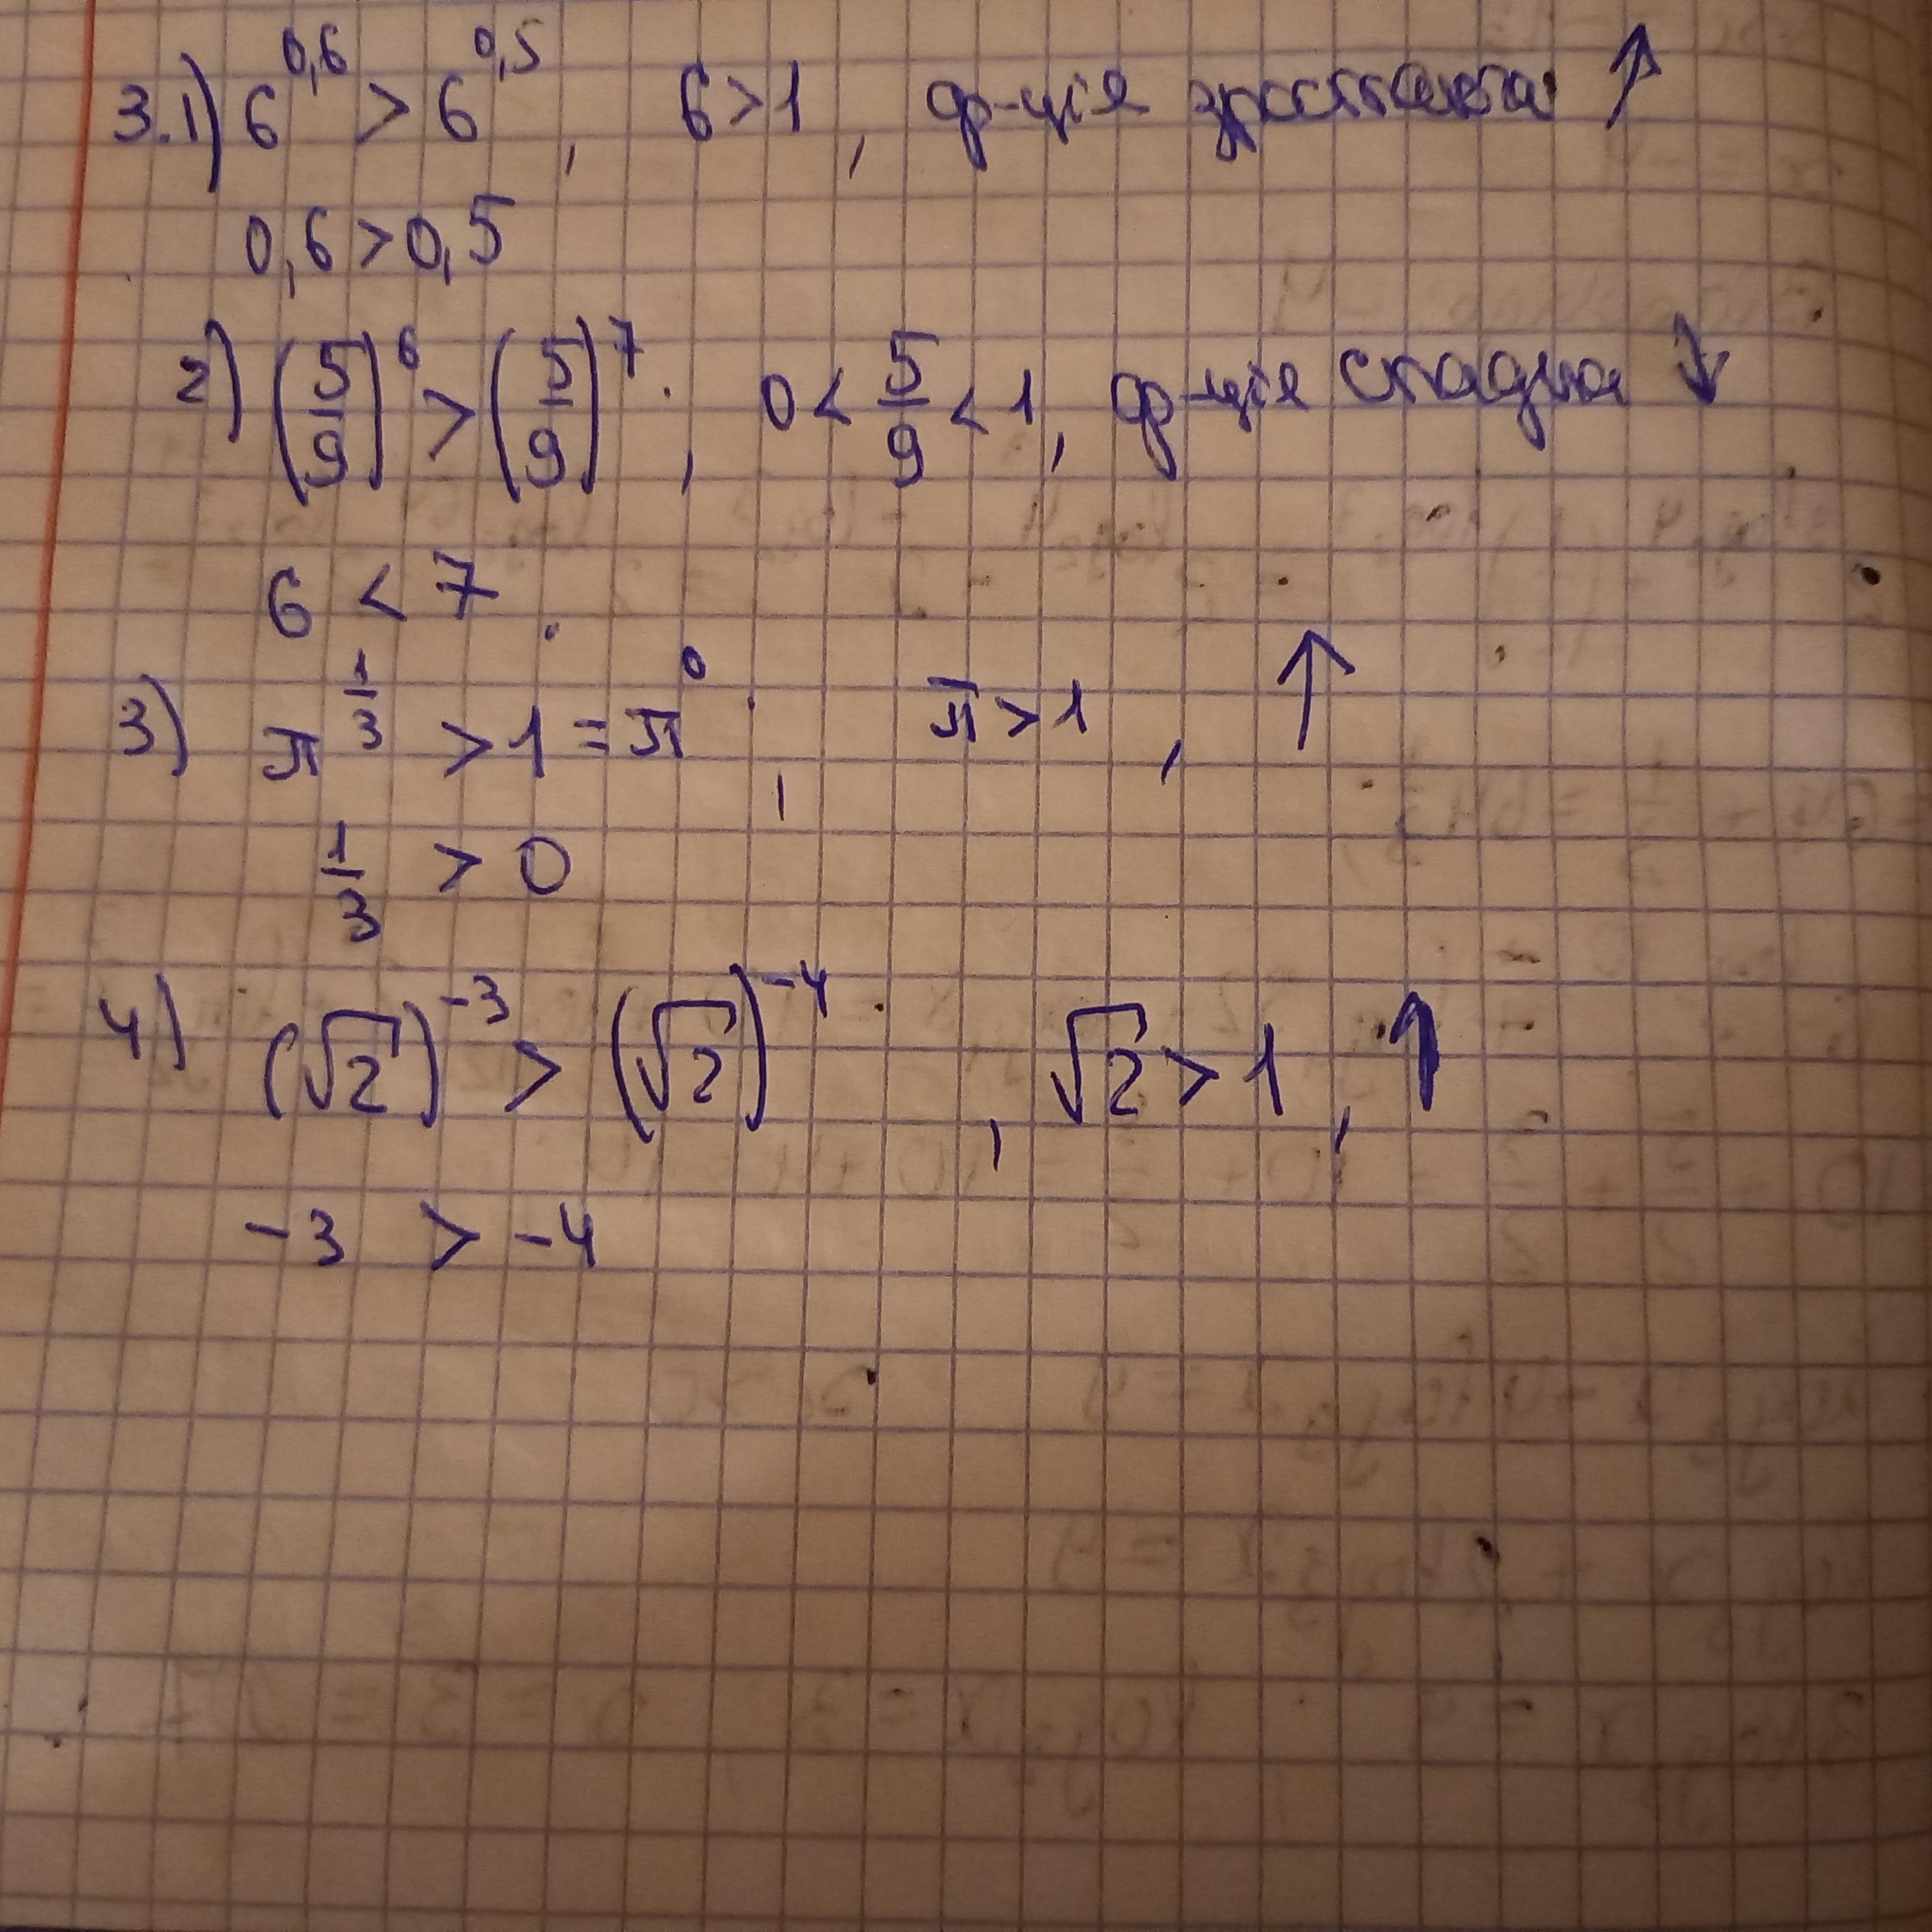 3.1) 6^0,6 > 6^0,5 , 6 > 1 , ф-ція ↑
0,6 > 0,5
2) (5/9)^6 > (5/9)^7 , 0 < 5/9 < 1, ф-ція спадна ↓
6 < 7
3) π^1/3 > 1 = π^0 , π > 1 , ↑
1/3 > 0
4) (√2)^-3 > (√2)^-4 , √2 > 1 , ↑
-3 > -4